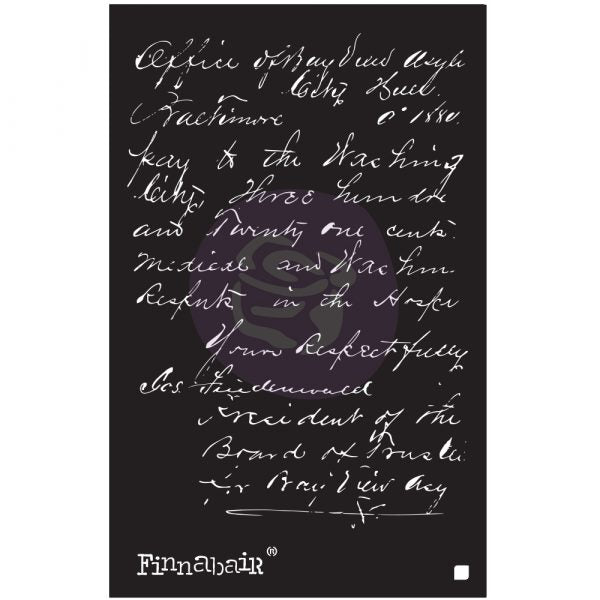 Office of Bay View Asyl
City Hall
Baltimore 1880.
pay to the Washing
City, Three hundre
and Twenty one cents.
Medical and Washin
in the Hospi
Yours Respectfully
President of the
Board of Trustee
for Bay View Asy
Finnabair®